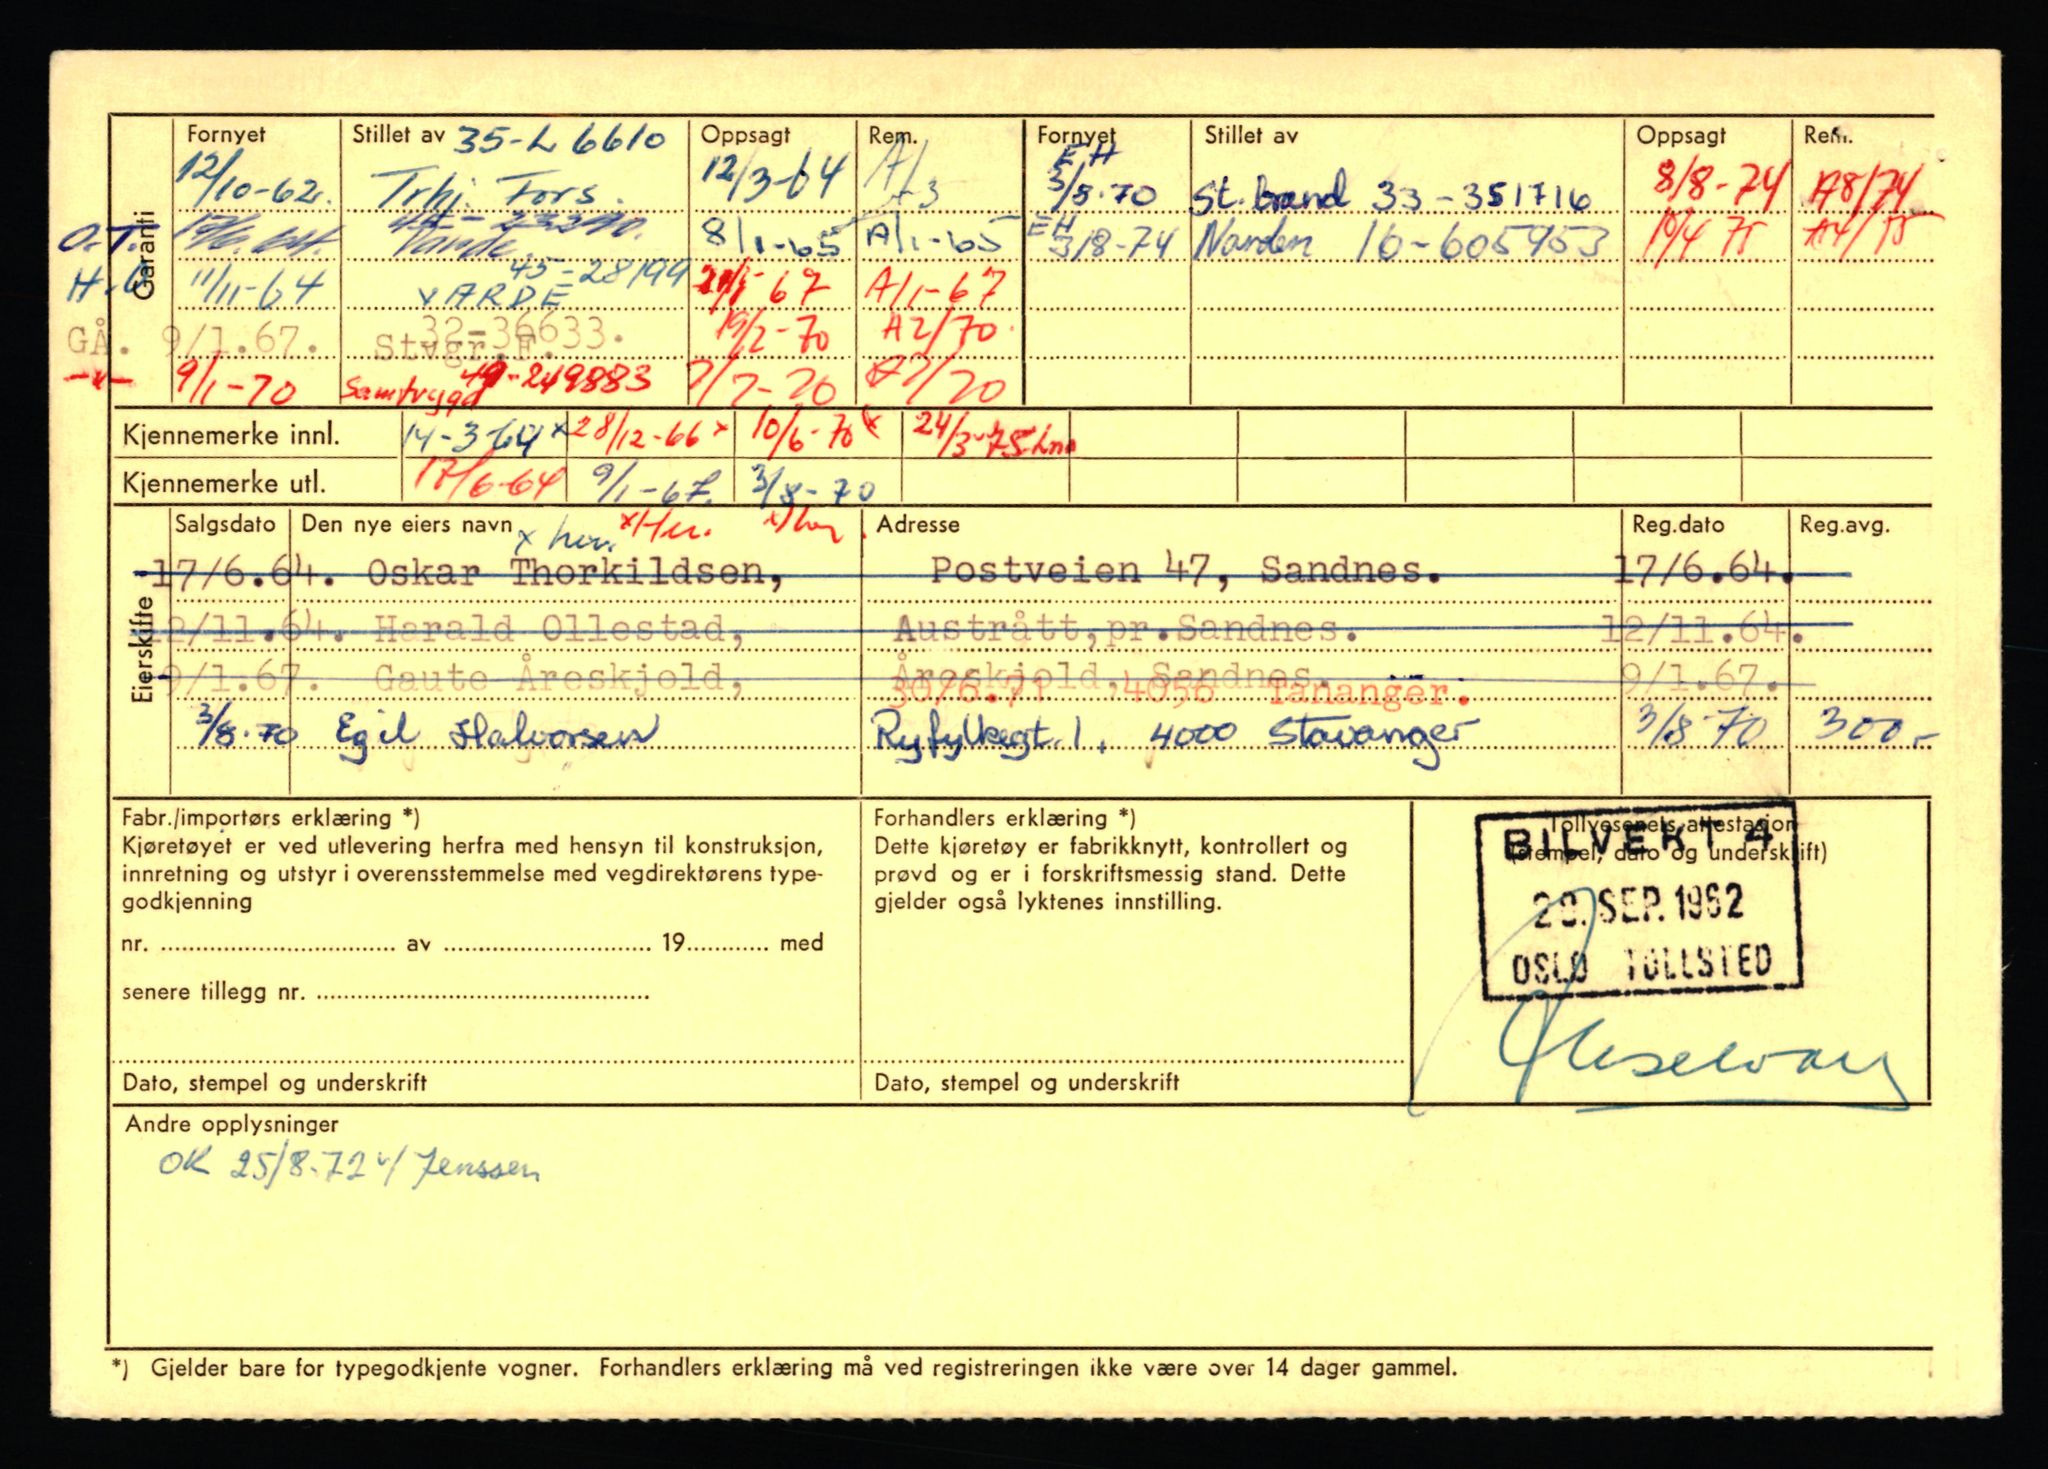 Garanti
Fornyet Stillet av 35-L 6610 Oppsagt Rem. Fornyet Stillet av Oppsagt Rem.
12/10-62. Trhj. Fors. 12/3-64 EH 3/8-70 St.brand 33-351716 8/8-74 A8/74
O.T. Varde 8/1-65 A/1-65 EH 3/8-74 Norden 16-605953 10/4 75 A4/75
11/11-64 VARDE 45-28199 A/1-67
GÅ. 9/1.67. Stvgr.F. 32-36633. 19/2-70 A2/70
9/1-70 Samtrygd 49-249883 7/7-70 A7/70
Kjennemerke innl. 14-3-64 x 28/12-66 x 10/6-70 x 24/3-75
Kjennemerke utl. 17/6-64 9/1-67. 3/8-70
Eierskifte
Salgsdato Den nye eiers navn Adresse Reg.dato Reg.avg.
17/6.64. Oskar Thorkildsen, Postveien 47, Sandnes. 17/6.64.
12/11.64. Harald Ollestad, Austrått, pr.Sandnes. 12/11.64.
9/1.67. Gaute Åreskjold, Åreskjold, Sandnes. 9/1.67.
30/6.71 4056 Tananger.
3/8-70 Egil Halvorsen Ryfylkegt. 1, 4000 Stavanger 3/8 70 300,-
Fabr./importørs erklæring *)
Kjøretøyet er ved utlevering herfra med hensyn til konstruksjon,
innretning og utstyr i overensstemmelse med vegdirektørens type-
godkjenning
nr. av 19 med
senere tillegg nr.
Dato, stempel og underskrift
Forhandlers erklæring *)
Dette kjøretøy er fabrikknytt, kontrollert og
prøvd og er i forskriftsmessig stand. Dette
gjelder også lyktenes innstilling.
Dato, stempel og underskrift
Tollvesenets attestasjon
(stempel, dato og underskrift)
BILVEKT 4
SEP. 1962
OSLO TOLLSTED
Andre opplysninger
OK 25/8-72 v/ Jenssen
*) Gjelder bare for typegodkjente vogner. Forhandlers erklæring må ved registreringen ikke være over 14 dager gammel.